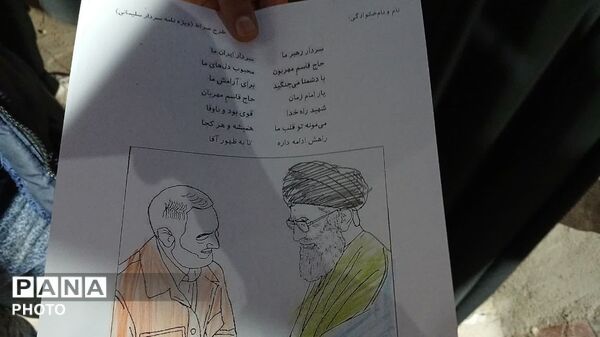 نام و نام خانوادگی:
طرح سرانه (ویژه نامه سردار سلیمانی)
سردار رهبر ما سردار ایران ما
حاج قاسم مهربون محبوب دل‌های ما
با دشمنا می‌جنگید برای آرامش ما
یار امام زمان حاج قاسم مهربان
شهید راه خدا قوی بود و باوفا
می‌مونه تو قلب ما همیشه و هر کجا
راهش ادامه داره تا به ظهور آقا
PANA
PHOTO